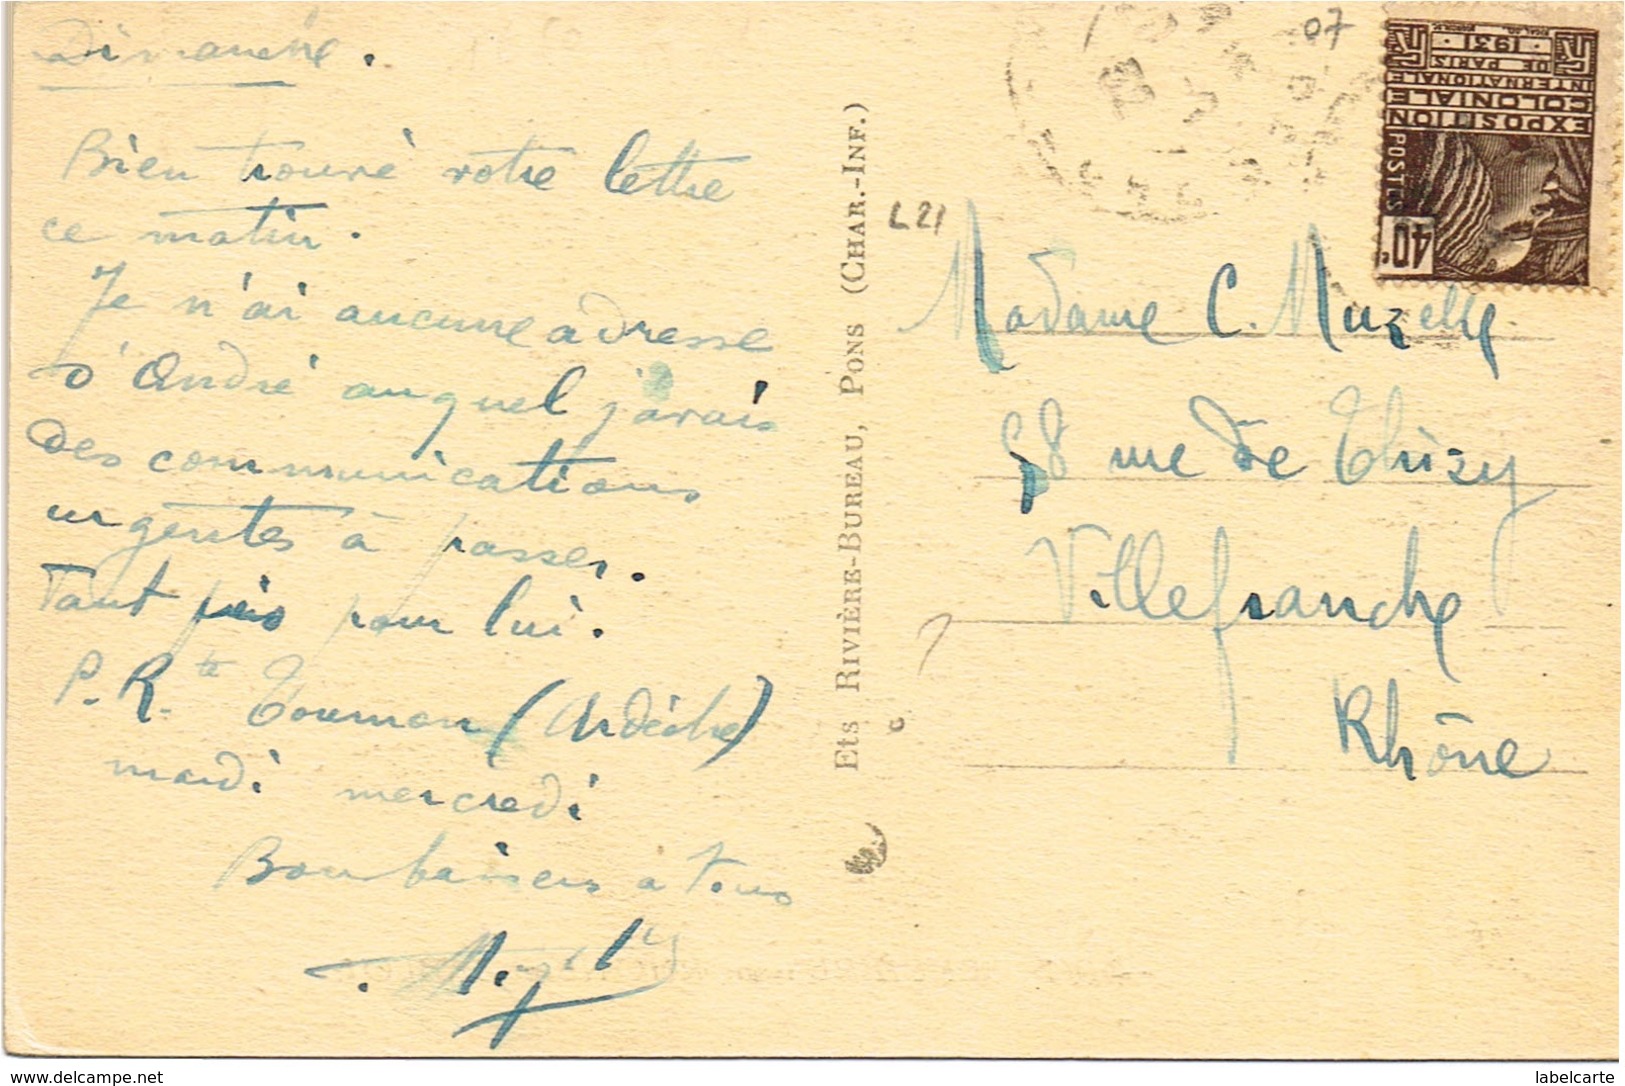 Dimanche.
Bien trouvé votre lettre
ce matin.
Je n'ai aucune adresse
d'André auquel j'avais
des communications
urgentes à passer.
Tant pis pour lui.
P. Rte Tournon (Ardèche)
mardi mercredi
Bons baisers à tous
Ets RIVIÈRE-BUREAU, PONS (CHAR.-INF.)
L21
07
EXPOSITION
COLONIALE
INTERNATIONALE
DE PARIS
1931
POSTES
40c.
Madame C. Muzelle
58 rue de Thizy
Villefranche
Rhône
www.delcampe.net
labelcarte